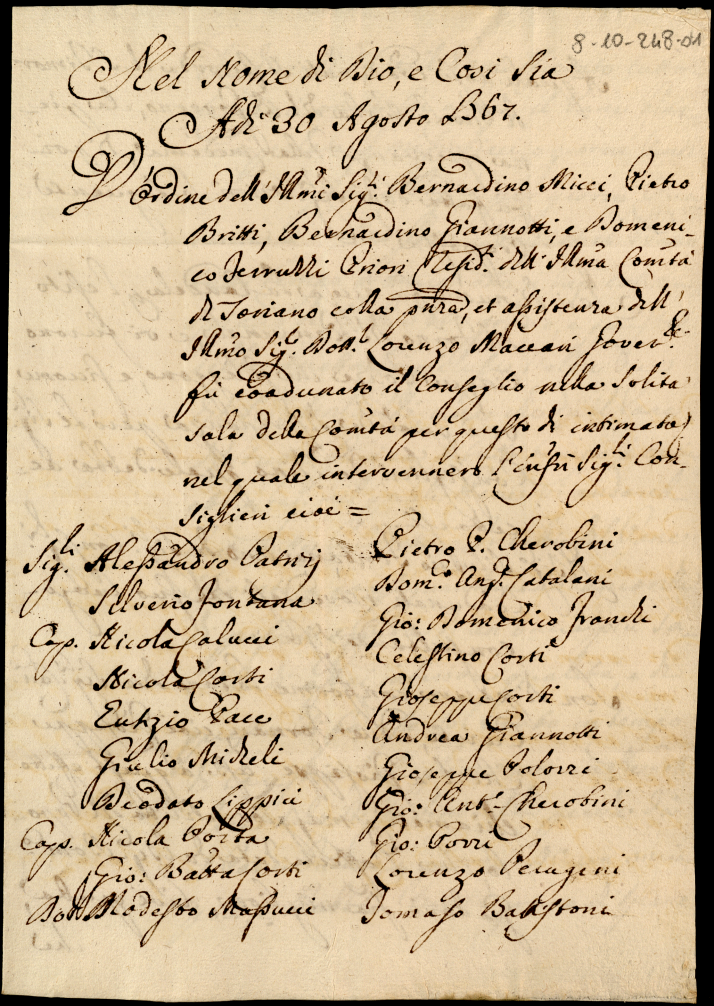 8-10-248-01
Nel Nome di Dio, e Così Sia
Adì 30 Agosto 1767.
D'Ordine dell'Illmi Sigri Bernardino Micci, Pietro
Britti, Bernardino Giannotti, e Domeni-
co Ferruzzi Priori Resid.ti dell'Illma Comtà
di Soriano colla pnza, et assistenza dell'
Illmo Sigr Dottr Lorenzo Maccari Goverre
fù coadunato il Conseglio nella solita
sala della Comtà per questo dì intimato,
nel quale intervennero l'infri Sigri Con-
siglieri cioè =
Sigri Alessandro Patrizj
Silverio Fontana
Cap. Nicola Calucci
Nicola Corti
Eutizio Pace
Giulio Micheli
Deodato Lippici
Cap. Nicola Porta
Gio: Batta Corti
Dott Modesto Massucci
Pietro P. Cherobini
Dom.o Ang. Catalani
Gio: Domenico Franchi
Celestino Corti
Gioseppe Corti
Andrea Giannotti
Gioseppe Polozzi
Gio: Ant.o Cherobini
Gio: Porri
Lorenzo Perugini
Tomaso Battistoni